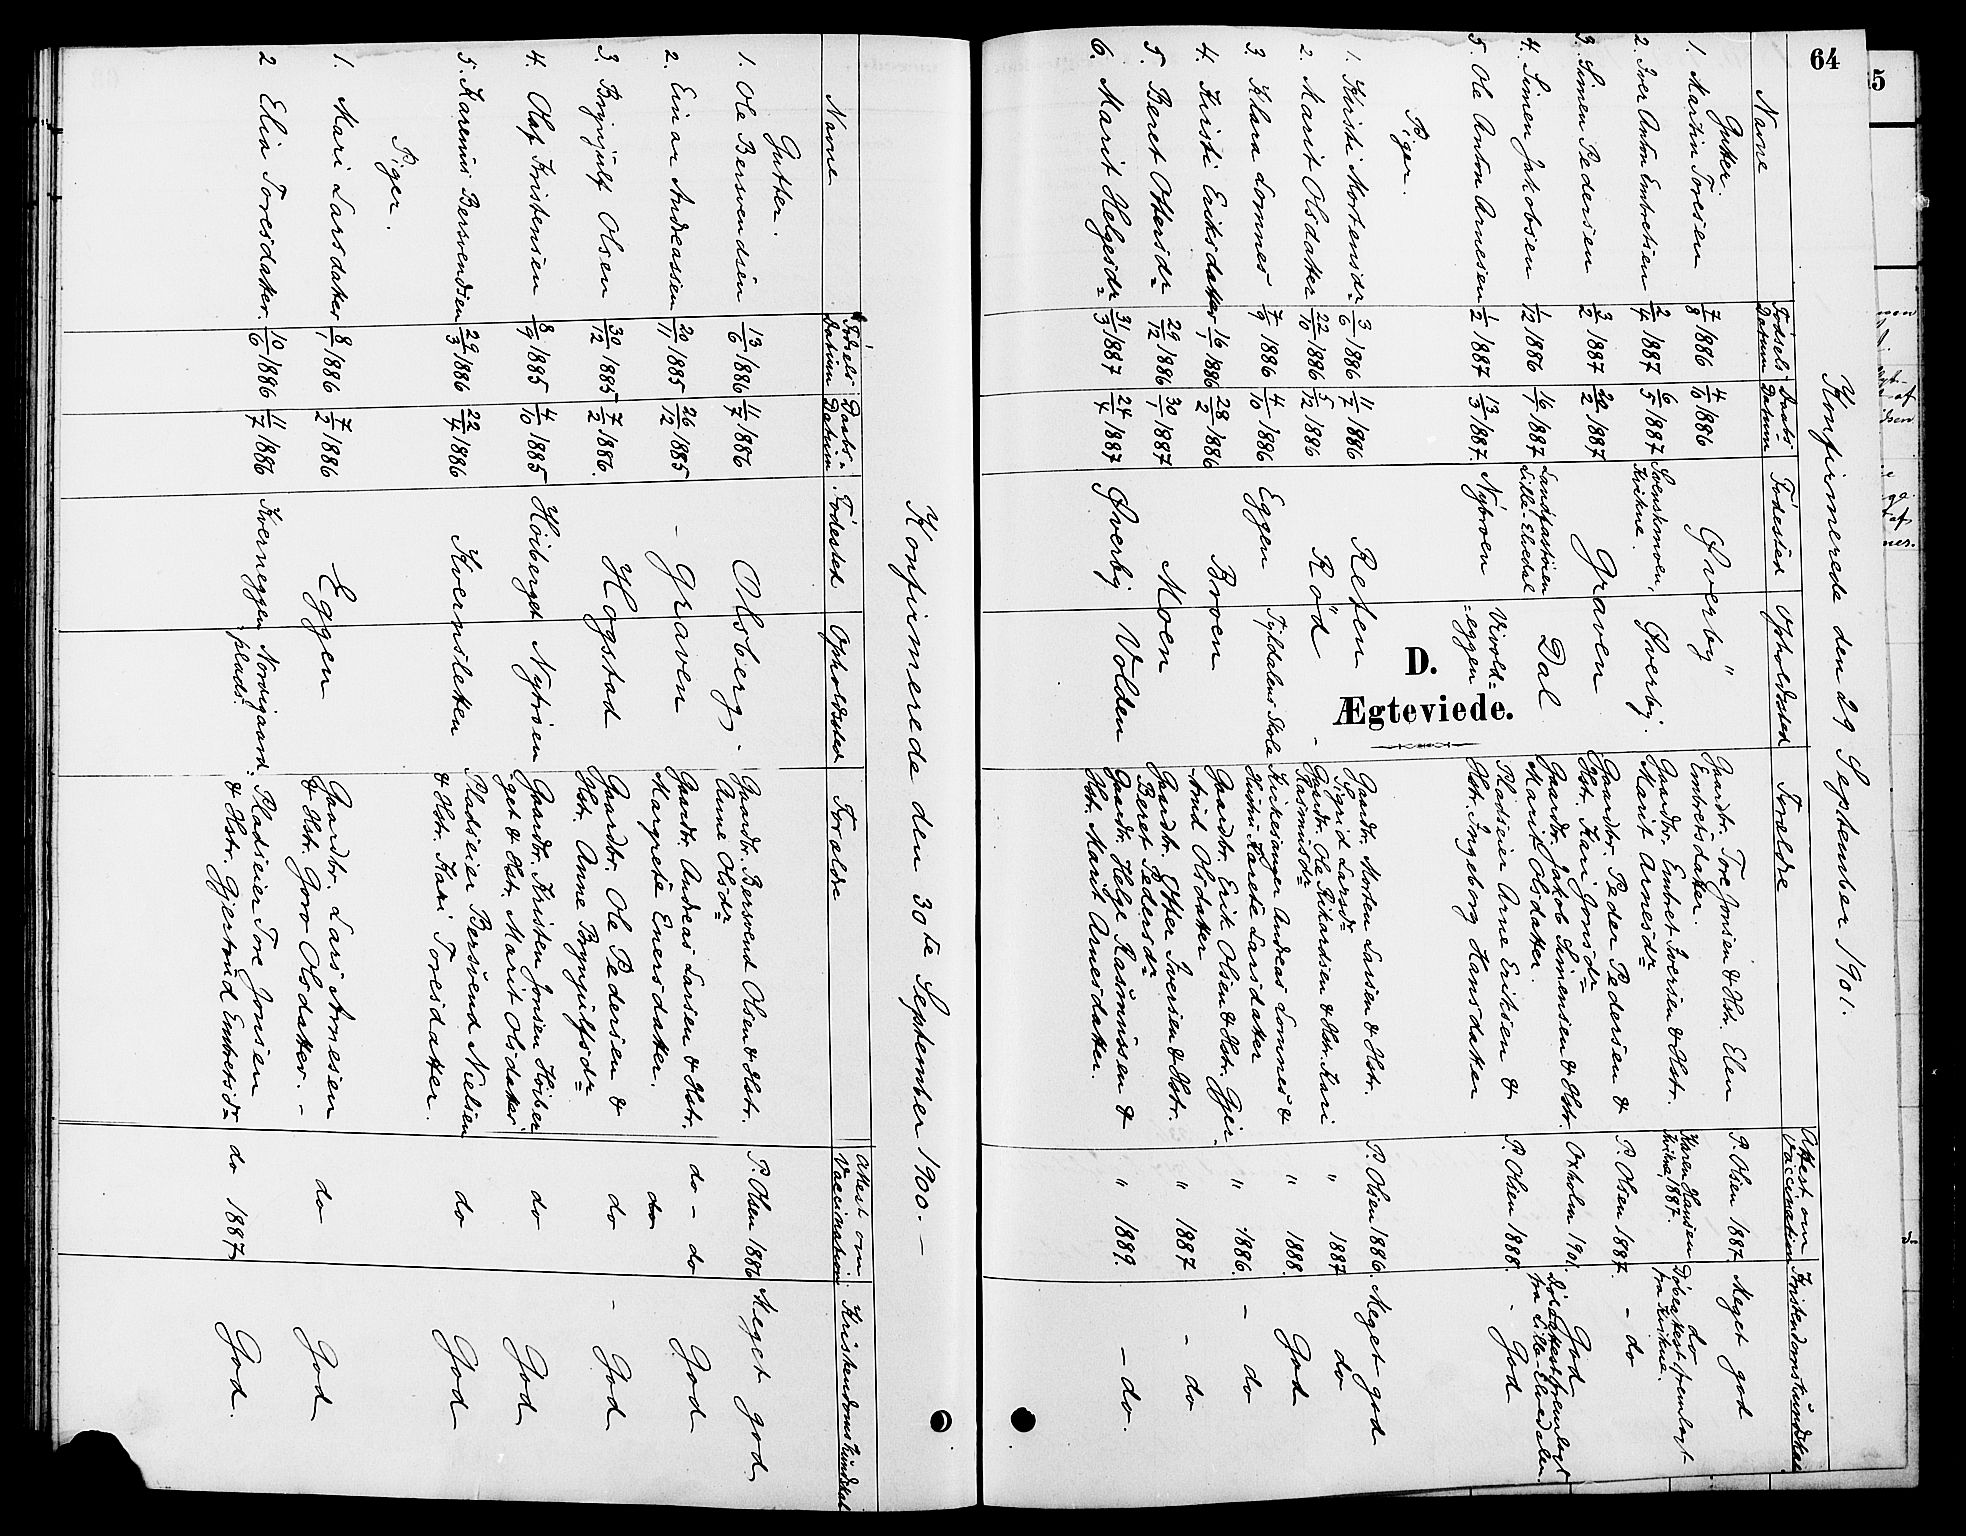 Konfirmerede den 30te September 1900. –
Navne | Fødsels Datum | Daabs- Datum | Fødested | Opholdssted | Forældre | Attest om Vaccination | Kristendomskundskab
Gutter.
1. Ole Bersvendsen | 13/6 1886 | 11/7 1886 | Olsberg. | Gaardbr. Bersvend Olsen & Hstr. Anne Olsdr | P. Olsen 1886 | Meget god
2. Einar Andreassen | 20/11 1885 | 26/12 1885 | – Graven | Gaardbr. Andreas Larsen & Hstr. Margrete Enersdatter. | do – do | God
3. Brynjulf Olsen | 30/12 1885 | 7/2 1886. | Hogstad | Gaardbr. Ole Pedersen & Hstr. Anne Brynjulfsdr | do do | – God
4. Olaf Kristensen | 8/9 1885 | 4/10 1885 | Høiberget | Nytrøen | Gaardbr. Kristen Jonsen Høiberget & Hstr. Marit Olsdatter | do | God
5. Karenius Bersvendsen | 29/3 1886 | 22/4 1886 | Kvernsletten | Pladseier Bersvend Nielsen & Hstr. Kari Toresdatter. | do | God
Piger.
1. Mari Larsdatter | 8/1 1886 | 7/2 1886 | Eggen | Gaardbr. Lars Arnesen & Hstr. Goro Olsdatter. – | do | God
2 Elia Toresdatter. | 10/6 1886 | 11/7 1886 | Kverneggen | Nordigaards- plads. | Pladseier Tore Jonsen & Hstr. Gjertrud Embretsdr | do 1887 | God.
64
Konfirmerede den 29 September 1901.
Navne | Fødsels Datum | Daabs- Datum | Fødested | Opholdssted | Forældre | Attest om Vaccination | Kristendomskundskab
Gutter.
1. Martin Toresen | 7/8 1886 | 4/10 1886 | Øverby " | Gaardbr. Tore Jonsen & Hstr. Elen Embretsdatter. | P. Olsen 1887. | Meget god
2. Iver Anton Embretsen | 2/4 1887 | 6/5 1887 | Svenskmoen, Kvikne. | Øverby. | Gaardbr. Embret Iversen & Hstr. Marit Arnesdr | Karen Hansen Kvikne, 1887. | do Døbeattest fremlagt fra Kvikne.
3. Simen Pedersen | 3/2 1887 | 1887 | Graven | Gaardbr. Peder Pedersen & Hstr. Kari Jonsdr | P. Olsen 1887. | – do
4. Simen Jakobsen | 1/12 1886 | 16/1 1887 | Lille-Elvedal | Dal | Gaardbr. Jakob Simensen & Hstr. Marit Olsdatter. | Oxholm 1901. | God Døbeattest fremlagt fra Lille-Elvedalen.
5. Ole Anton Arnesen | 1/2 1887 | 13/3 1887. | Nybroen | Vivold- =eggen | Pladseier Arne Eriksen & Hstr. Ingeborg Hansdatter | P. Olsen 1888. | – God
Piger.
D.
Ægteviede.
1. Kirsti Mortensdr | 3/6 1886 | 11/7 1886 | Reten | Gaardbr. Morten Larsen & Hstr. Sigrid Larsdr | P. Olsen 1886. | Meget god
2. Marit Olsdatter | 22/10 1886 | 5/12 1886 | Rød – | Gaardbr. Ole Rikardsen & Hstr. Kari Rasmusdr | " 1887 | do
3 Klara Lomnes | 7/9 1886 | 4/10 1886 | Eggen | Tyldalens Skole | Kirkesanger Andreas Lomnes & Hustru Karete Larsdatter | " 1888. | God
4. Kirsti Eriksdatter | 16/1 1886 | 28/2 1886 | Broen | Gaardbr. Erik Olsen & Hstr. Gjer- =trud Olsdatter | " 1886. | – do
5. Beret Ottersdr | 29/12 1886 | 30/1 1887 | Moen | Gaardbr. Otter Iversen & Hstr. Beret Pedersdr | " 1887 | – do
6. Marit Helgesdr | 31/3 1887 | 24/4 1887 | Øverby | Volden | Gaardbr. Helge Rasmussen & Hstr. Marit Arnesdatter. | " 1889. | – do.